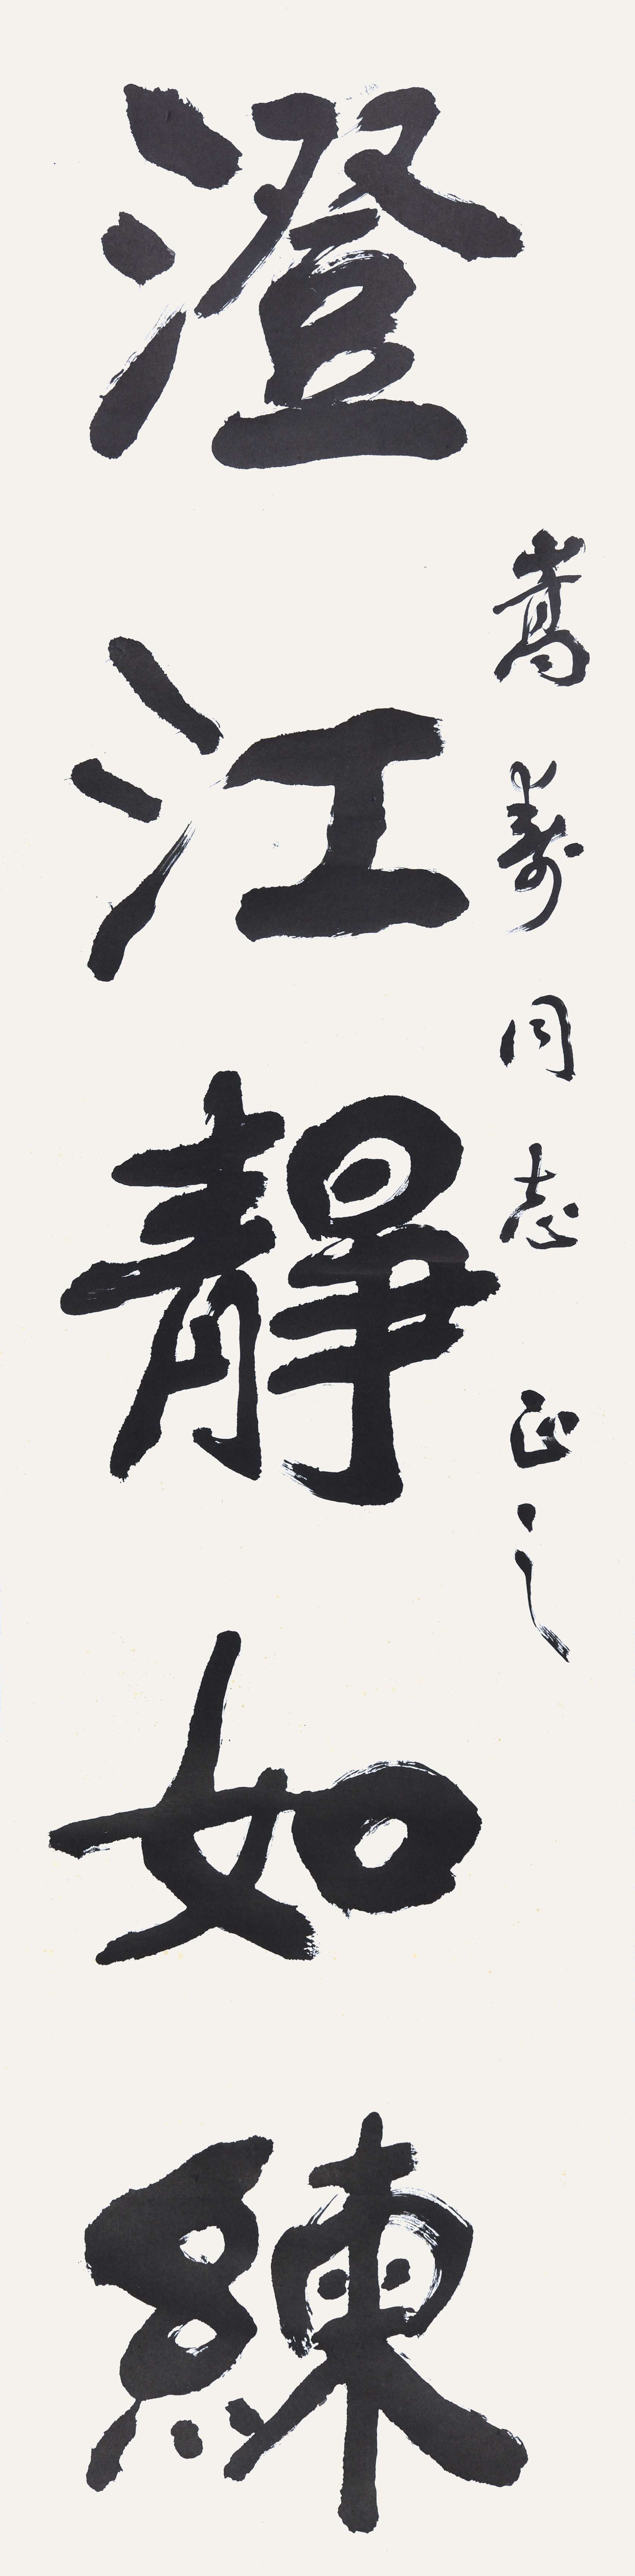 嵩壽同志正之
澄江靜如練